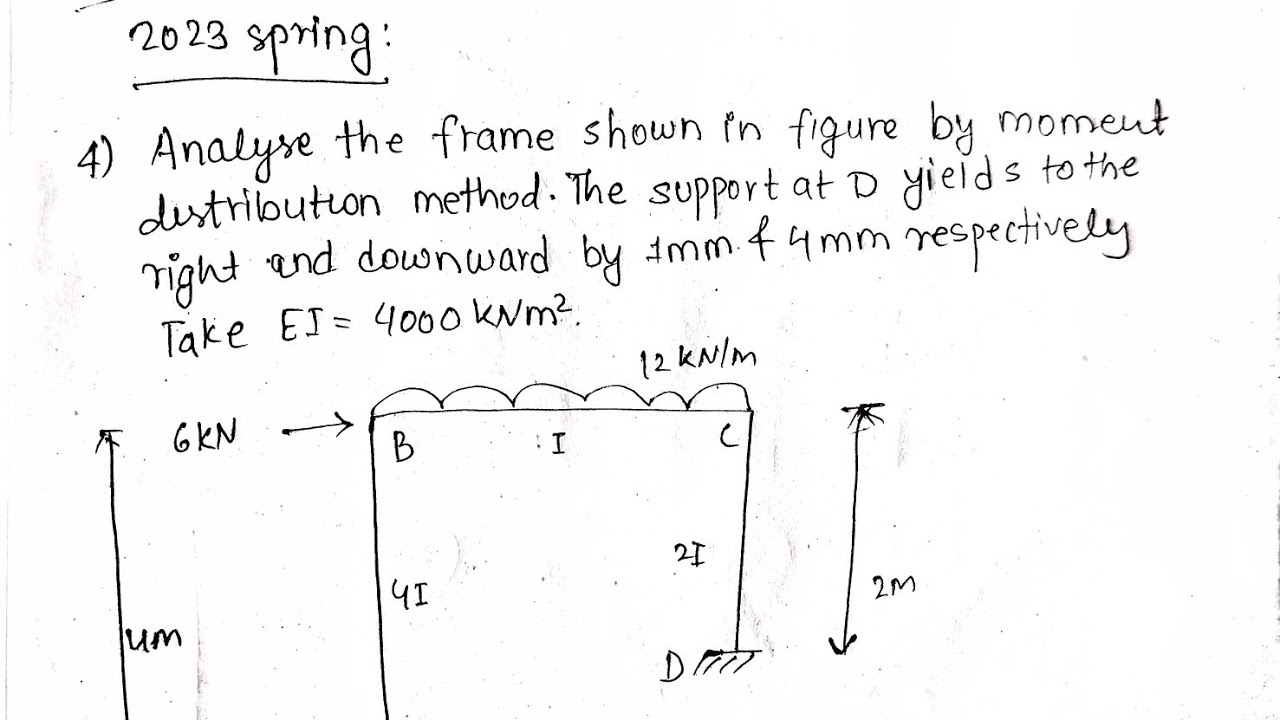 2023 spring:
4) Analyse the frame shown in figure by moment
distribution method. The support at D yields to the
right and downward by 1mm & 4mm respectively
Take EI = 4000 kNm².
12 kN/m
6KN
B
I
C
4I
2I
4m
2m
D